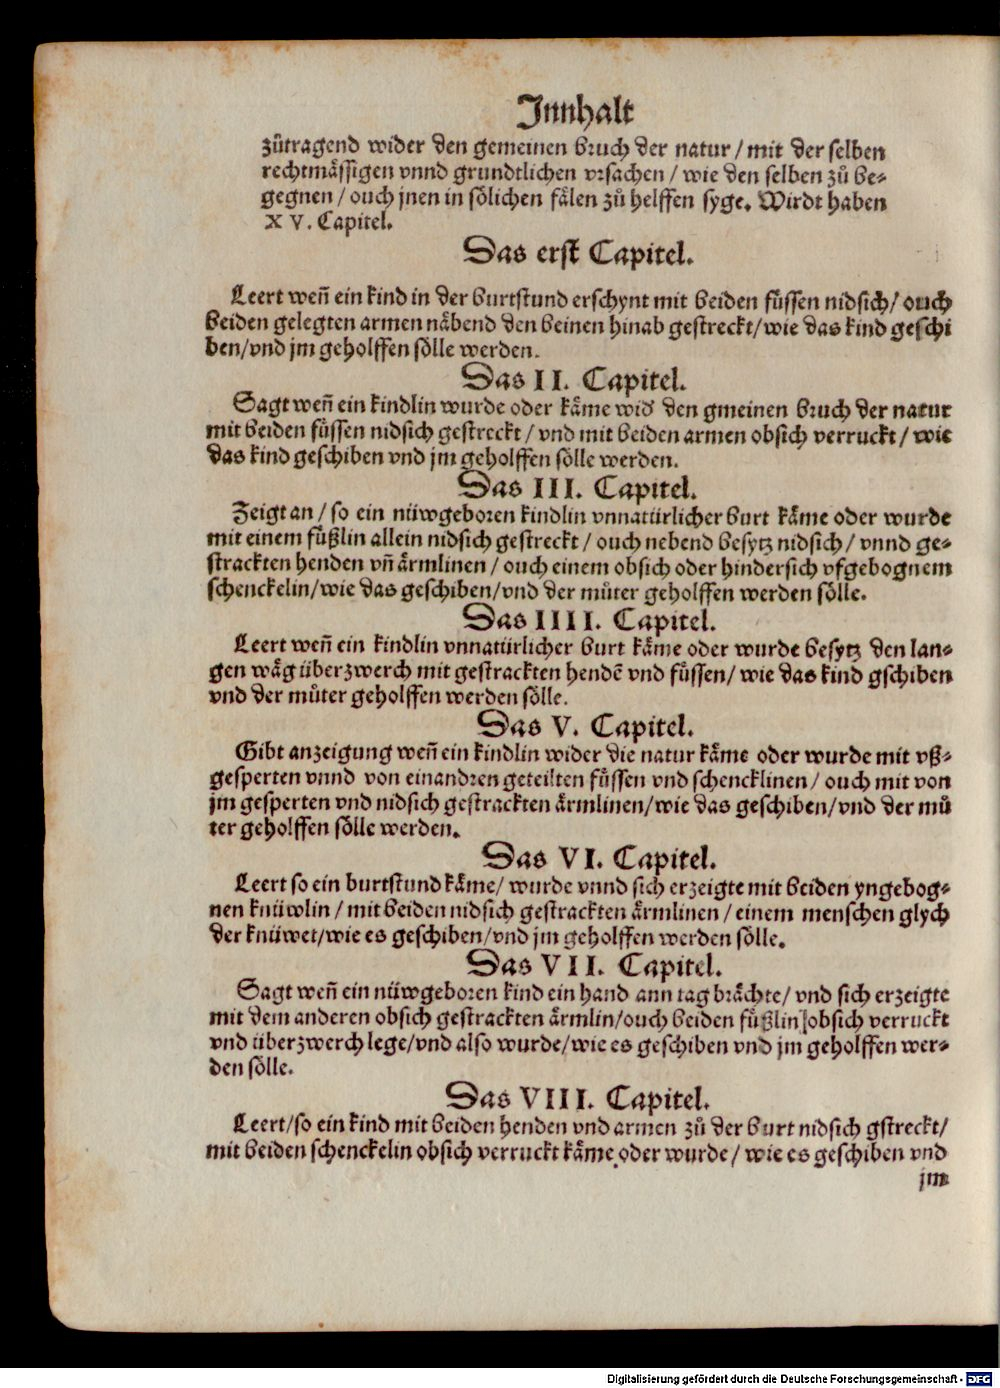 Innhalt
zůtragend wider den gemeinen bruch der natur / mit der selben
rechtmässigen vnnd grundtlichen vrsachen / wie den selben zů be-
gegnen / ouch jnen in sölichen fälen zů helffen syge. Wirdt haben
XV. Capitel.
Das erst Capitel.
Leert weñ ein kind in der burtstund erschynt mit beiden füssen nidsich / ouch
beiden gelegten armen näbend den beinen hinab gestreckt / wie das kind geschi
ben / vnd jm geholffen sölle werden.
Das II. Capitel.
Sagt weñ ein kindlin wurde oder käme wid' den gmeinen bruch der natur
mit beiden füssen nidsich gestreckt / vnd mit beiden armen obsich verruckt / wie
das kind geschiben vnd jm geholffen sölle werden.
Das III. Capitel.
Zeigt an / so ein nüwgeboren kindlin vnnatürlicher burt käme oder wurde
mit einem füßlin allein nidsich gestreckt / ouch nebend besytz nidsich / vnnd ge-
strackten henden vñ ärmlinen / ouch einem obsich oder hindersich vfgebognem
schenckelin / wie das geschiben / vnd der můter geholffen werden sölle.
Das IIII. Capitel.
Leert weñ ein kindlin vnnatürlicher burt käme oder wurde besytz den lan-
gen wäg überzwerch mit gestrackten hendẽ vnd füssen / wie das kind gschiben
vnd der můter geholffen werden sölle.
Das V. Capitel.
Gibt anzeigung weñ ein kindlin wider die natur käme oder wurde mit vß-
gesperten vnnd von einandren geteilten füssen vnd schencklinen / ouch mit von
jm gesperten vnd nidsich gestrackten ärmlinen / wie das geschiben / vnd der mů
ter geholffen sölle werden.
Das VI. Capitel.
Leert so ein burtstund käme / wurde vnnd sich erzeigte mit beiden yngebog-
nen knüwlin / mit beiden nidsich gestrackten ärmlinen / einem menschen glych
der knüwet / wie es geschiben / vnd jm geholffen werden sölle.
Das VII. Capitel.
Sagt weñ ein nüwgeboren kind ein hand ann tag brächte / vnd sich erzeigte
mit dem anderen obsich gestrackten ärmlin / ouch beiden füßlin obsich verruckt
vnd überzwerch lege / vnd also wurde / wie es geschiben vnd jm geholffen wer-
den sölle.
Das VIII. Capitel.
Leert / so ein kind mit beiden henden vnd armen zů der burt nidsich gstreckt /
mit beiden schenckelin obsich verruckt käme oder wurde / wie es geschiben vnd
jm
Digitalisierung gefördert durch die Deutsche Forschungsgemeinschaft - DFG